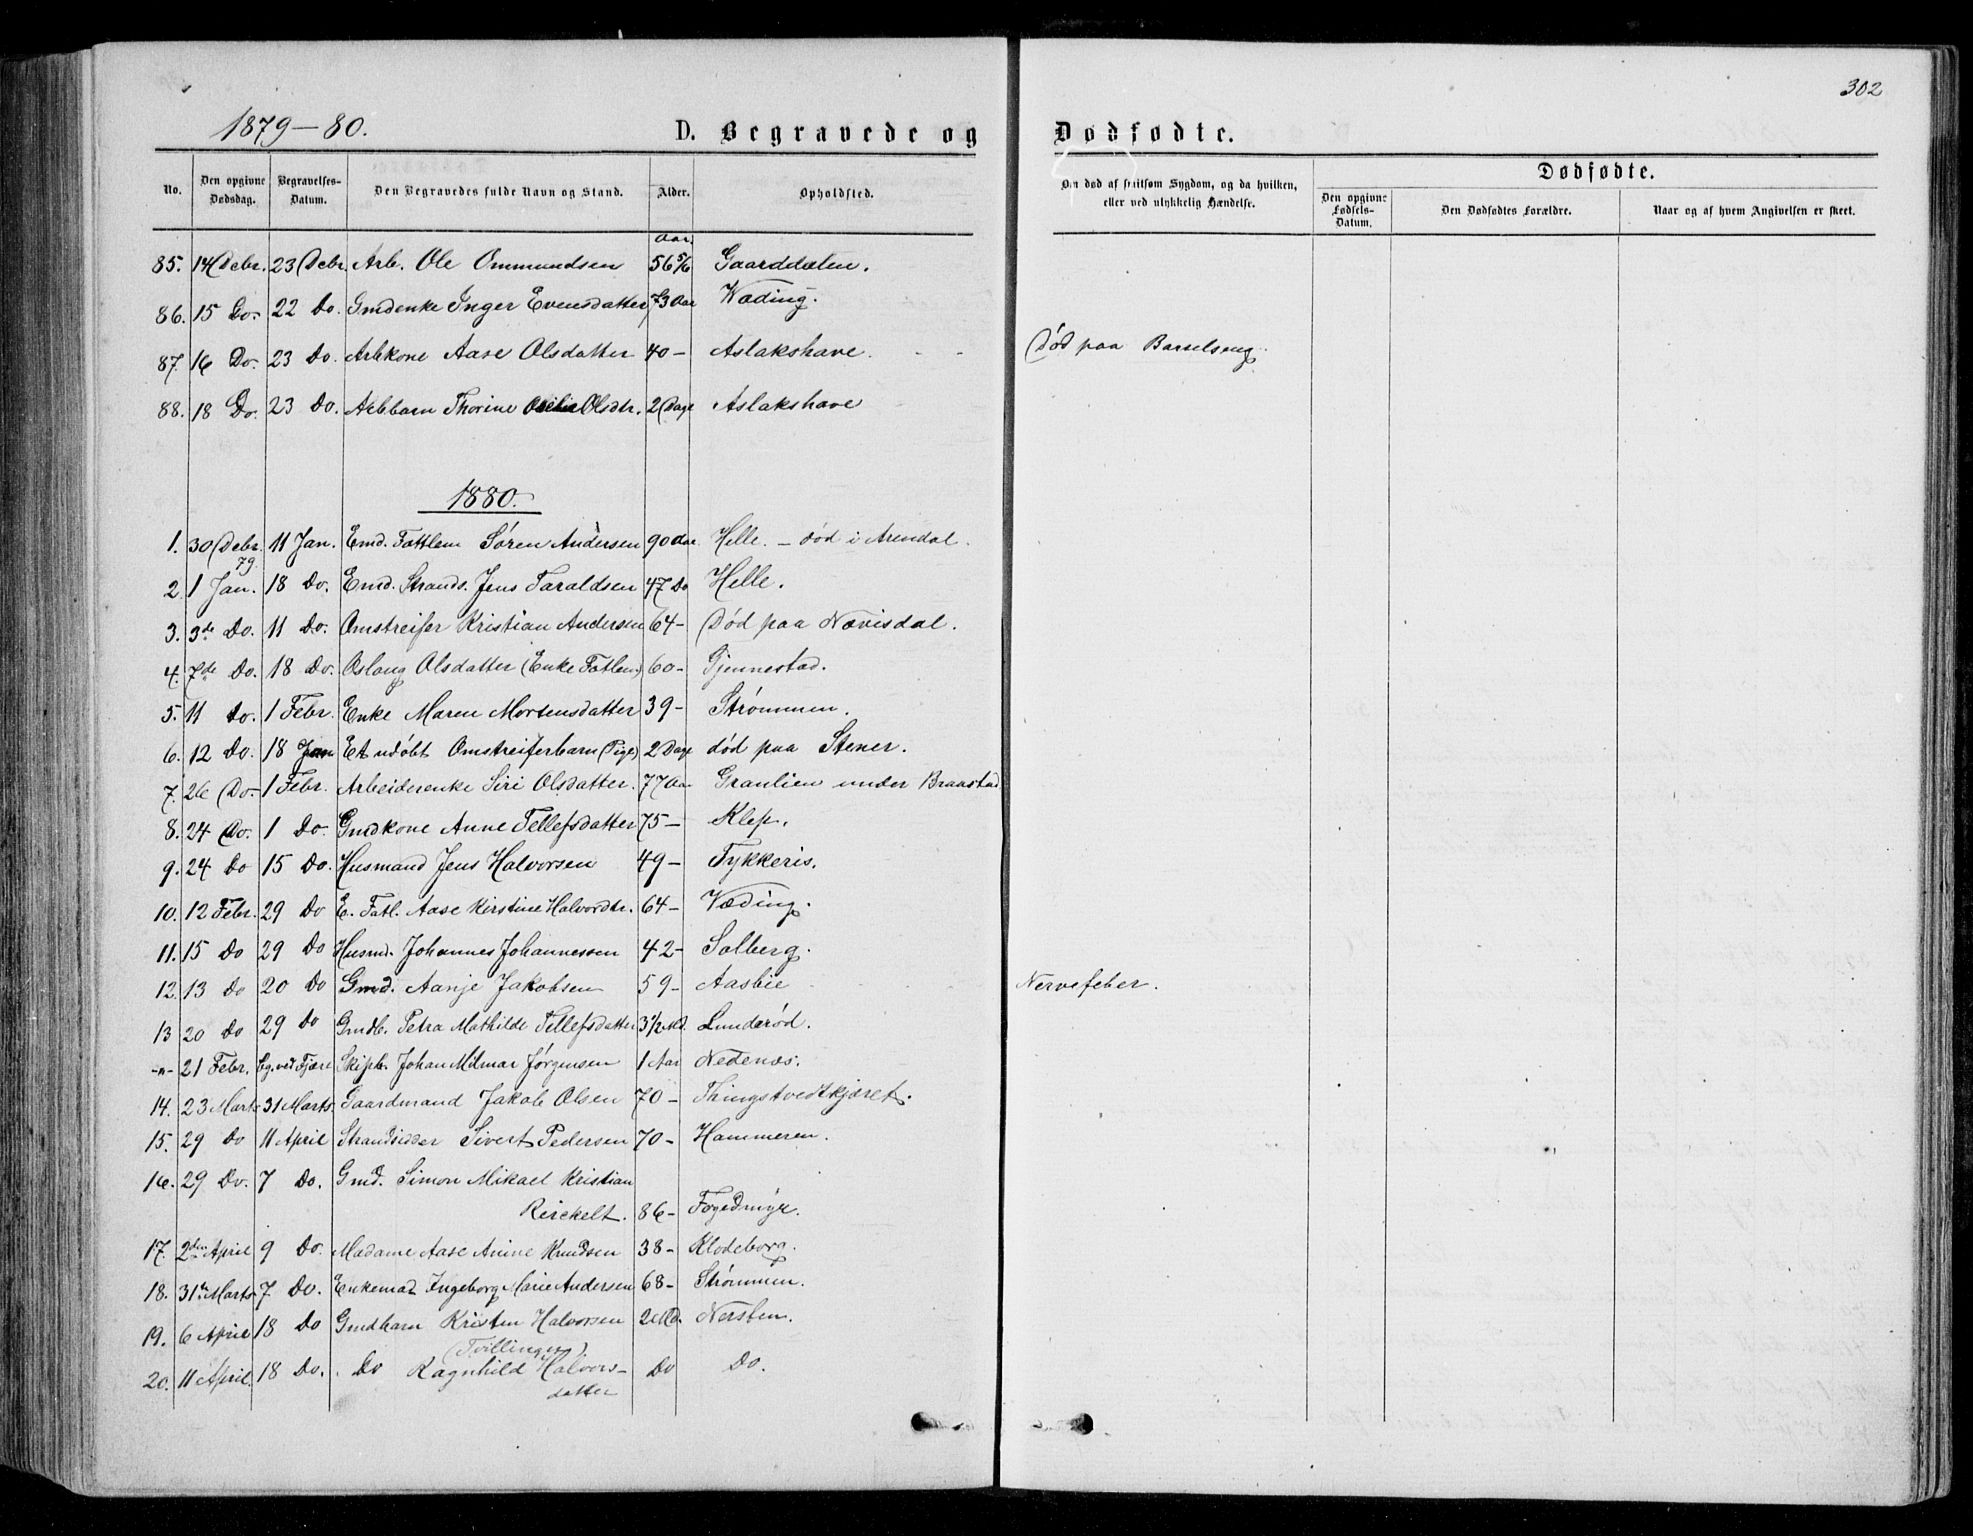 302
1879-80.
D. Begravede og Dødfødte.
No. Den opgivne Dødsdag. Begravelses-Datum. Den Begravedes fulde Navn og Stand. Alder. Opholdssted.
Om død af smitsom Sygdom, og da hvilken, eller ved ulykkelig Hændelse. Dødfødte.
Den opgivne Fødsels-Datum. Den Dødfødtes Forældre. Naar og af hvem Angivelsen er skeet.
85. 14 Debr. 23 Debr. Arb. Ole Ommundsen 56 5/6 Aar. Gaarddalen.
86. 15 Do. 22 Do. Gmdenke Inger Evensdatter 73 Aar Væding.
87. 16 Do. 23 Do. Arbkone Aase Olsdatter 40- Aslakshave. Død paa Barselseng.
88. 18 Do. 23 Do. Arbbarn Thorine Olsdtr. 2 Dage Aslakshave
1880.
1. 30 Debr. 79. 11 Jan. Emd. Fattlem Søren Andersen 90 Aar Helle. - død i Arendal.
2. 1 Jan. 18 Do. Emd. Strands. Jens Taraldsen 47 Do Helle.
3. 3de Do. 11 Do. Omstreifer Kristian Andersen 64- Død paa Nævisdal.
4. 7de Do. 18 Do. Aslaug Olsdatter (Enke Fatlem) 60- Gjennestad.
5. 11 Do. 1 Febr. Enke Maren Mortensdatter 39- Strømmen.
6. 12 Do. 18 Jan Et udøbt Omstreiferbarn (Pige) 2 Dage død paa Stener.
7. 26 Do- 1 Febr. Arbeiderenke Siri Olsdatter. 77 Aar Granlien under Braastad
8. 24 Do. 1 Do. Gmdkone Anne Tellefsdatter 75- Klep.
9. 24 Do 15 Do. Husmand Jens Halvorsen 49- Tykkeris.
10. 12 Febr. 29 Do E. Fatl. Aase Kirstine Halvordtr. 64- Væding.
11. 15 Do 29 Do Husmd. Johannes Johannessen 42- Solberg.
12. 13 Do 20 Do Gmd. Aanje Jakobsen 59- Aasbie Nervefeber.
13 20 Do 29 Do Gmdb. Petra Mathilde Tellefsdatter 3 1/2 Md. Lunderød.
-"- 21 Febr. Bg. ved Fjære Skipb. Johan Milmar Jørgensen 1 Aar Nedenæs.
14. 23 Marts 31 Marts. Gaardmand Jakob Olsen 70- Thingstvedtkjæret.
15. 29 Do 11 April Strandsidder Sivert Pedersen 70- Hammeren.
16. 29 Do. 7 Do. Gmd. Simon Mikael Kristian
Reickelt. 86- Fogedmyr.
17. 2den April 9 Do. Madame Aase Anine Knudsen 38- Klodeborg.
18. 31te Marts 7 Do. Enkemad. Ingeborg Marie Andersen 68- Strømmen.
19. 6 April 18 Do Gmdbarn Kristen Halvorsen 2 Md. Nersten.
(Tvillinger)
20. 11 April. 18 Do. Do Ragnhild Halvors- Do Do.
datter